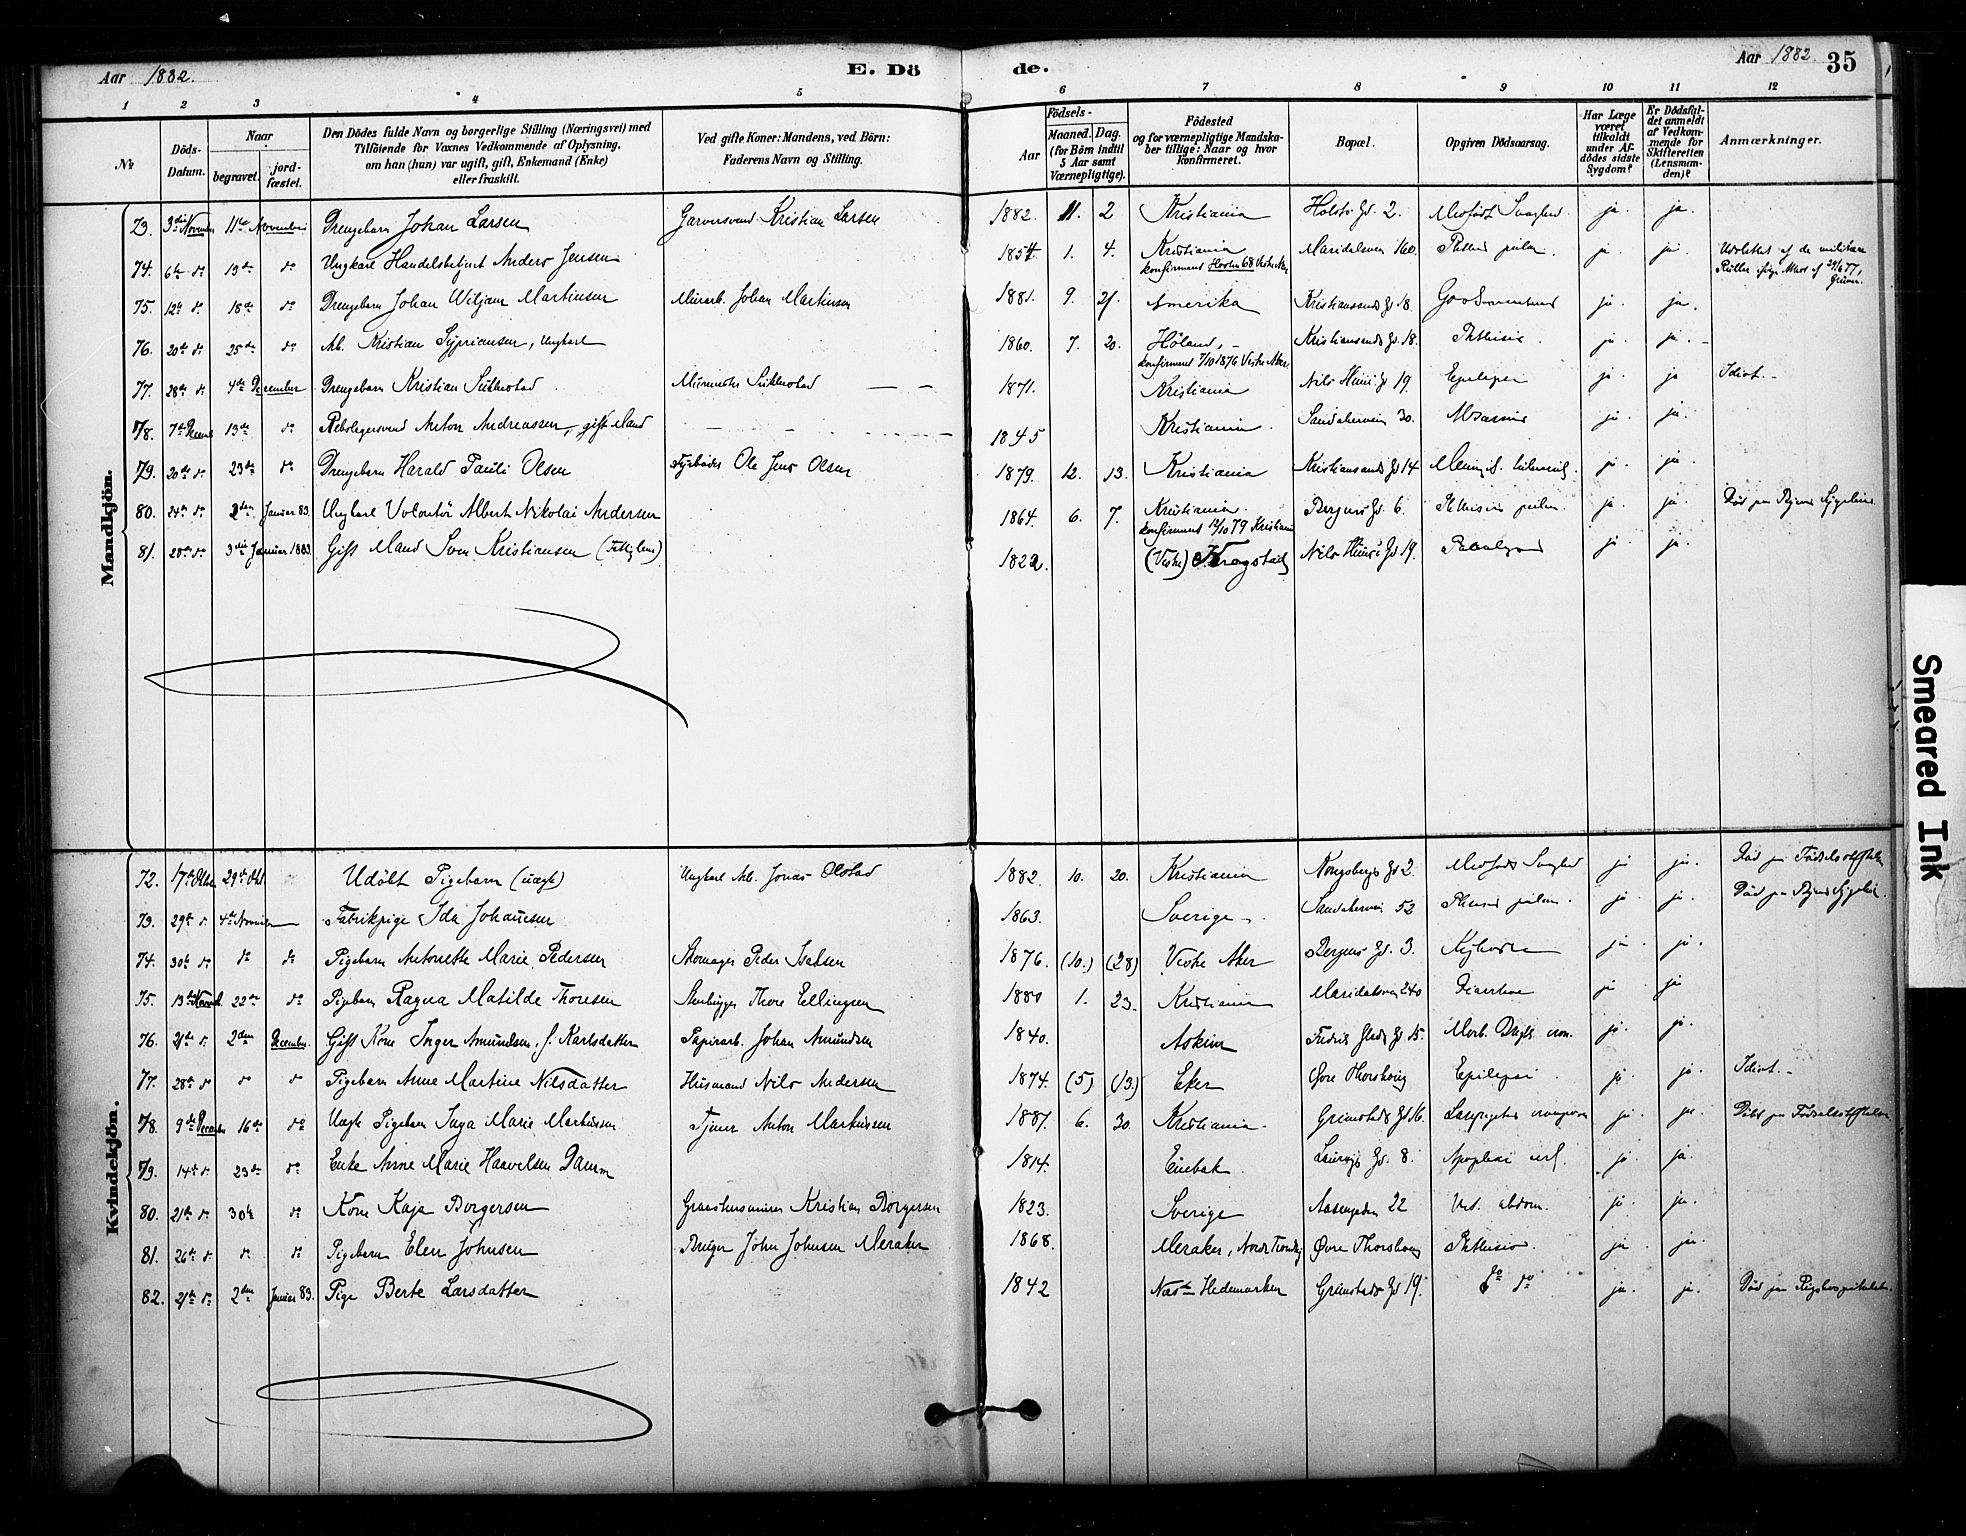 Aar 1882. E. Dö de. Aar 1882 35
1 2 3 4 5 6 7 8 9 10 11 12
No Döds-Datum. Naar begravet. jord-fæstet. Den Dödes fulde Navn og borgerlige Stilling (Næringsvei) med Tilföiende for Voxnes Vedkommende af Oplysning, om han (hun) var ugift, gift, Enkemand (Enke) eller fraskilt. Ved gifte Koner: Mandens, ved Börn: Faderens Navn og Stilling. Aar Födsels- Maaned. Dag. (for Börn indtil 5 Aar samt Værnepligtige). Födested og for værnepligtige Mandskaber tillige: Naar og hvor Konfirmeret. Bopæl. Opgiven Dödsaarsag. Har Læge været tilkaldt under Afdödes sidste Sygdom? Er Dödsfaldet anmeldt af Vedkommende for Skifteretten (Lensmanden)? Anmærkninger.
Mandkjön.
73. 3die November 11te November Drengebarn Johan Larsen Garversvend Kristian Larsen 1882. 11. 2 Kristiania Holsts Gd. 2. Medfödt Svaghed. ja. ja.
74. 6te do 13de do Ungkarl Handelsbetjent Anders Jensen 1854. 1. 4. Kristiania Maridalsveien 160. ja ja
konfirmeret Hösten 68 Vestre Aker
75. 12te do 18de do Drengebarn Johan Wiljam Martinsen Murarb. Johan Martinsen 1881. 9. 21. Amerika Kristianssands Gd 18. ja. ja.
76. 20de do 25de do Arb. Kristian Sypriansen, Ungkarl 1860. 7. 20. Höland, Kristiansands Gd. 18. Phthisis ja. ja.
konfirmeret 7/10 1876 Vestre Aker
77. 28de do 4de December Drengebarn Kristian 1871. Kristiania Nils Huus Gd 19. ja. ja Idiot.
78. 7de Decemb 13de do Rebslagersvend Anton Andreassen, gift Mand 1845 Kristiania. Sandakerveien 30. ja. ja.
79. 20de do 23de do Drengebarn Harald Pauli Olsen Fyrböder Ole Jens Olsen 1879. 12. 13. Kristiania Kristiansands Gd 14 ja. ja.
80. 24de do 2den Januar 83. Ungkarl Volontör Albert Nikolai Andersen 1864. 6. 7. Kristiania. Bergens Gd. 6. Phthisis pulm. ja. ja. Död paa Byens Sygehus
konfirmeret 12/10 79 Kristiania
81. 28de do 3die Januar 1883. Gift Mand Sven Kristiansen 1822. (Vestre) Kragstad Nils Huus Gd 19. ja. ja.
Kvindekjön.
72. 17de Oktbr 29de Okt Udöbt Pigebarn (uægte) Ungkarl Arb. Jonas Olstad 1882. 10. 20. Kristiania Kongsbergs Gd 2. Medfödt Svaghed ja ja. Död paa Födselsstiftelsen
73. 29de do 4de November Fabrikpige Ida Johansen 1863. Sverige. Sandakerveien 52 ja. ja. Död paa Byens Sygehus.
74. 30te do do do Pigebarn Antonette Marie Pedersen Skomager Peder Isaksen 1876. (10.) (28) Vestre Aker Bergens Gd. 3. ja ja.
75. 13de Novemb. 22de do Pigebarn Ragna Matilde Thoresen Stenhugger Thore Ellingsen 1880 1. 23. Kristiania Maridalsveien 240 Diarrhoe ja. ja
76. 21de do 2den December. Gift Kone Inger Amundsen, f. Karlsdatter Papirarb. Johan Amundsen 1840. Askim Fredrik Glads Gd 15. ja. ja.
77. 28de do do do Pigebarn Anne Martine Nilsdatter Husmand Nils Andersen 1874. (5) (13) Eker Övre Thorshoug Epilepsi ja. ja. Idiot.
78. 9de December 16de do Uægte Pigebarn Inga Marie Markussen Tjener Anton Markussen 1881. 6. 30. Kristiania. Grimstads Gd 16. ja. ja. Döbt paa Födselsstiftelsen
79. 14de do 23de do Enke Anne Marie Haavelsen Damm 1814. Enebak Laurvigs Gd. 8. ja. ja.
80. 21de do 30te do Kone Kaja Borgersen Kristian Borgersen 1823. Sverige Aasengaden 22 Vit. abdom. ja. ja.
81. 26de do do do Pigebarn Elen Johnsen Bruger John Johnsen Meraker 1868. Meraker, Nordr Trondhj. Övre Thorshoug Phthisis. ja ja.
82. 27de do 2den Januar 83. Pige Berte Larsdatter 1842 Næs Hedemarken Grimstads Gd 19. do do ja. ja. Död paa Rigshospitalet.
Smeared Ink